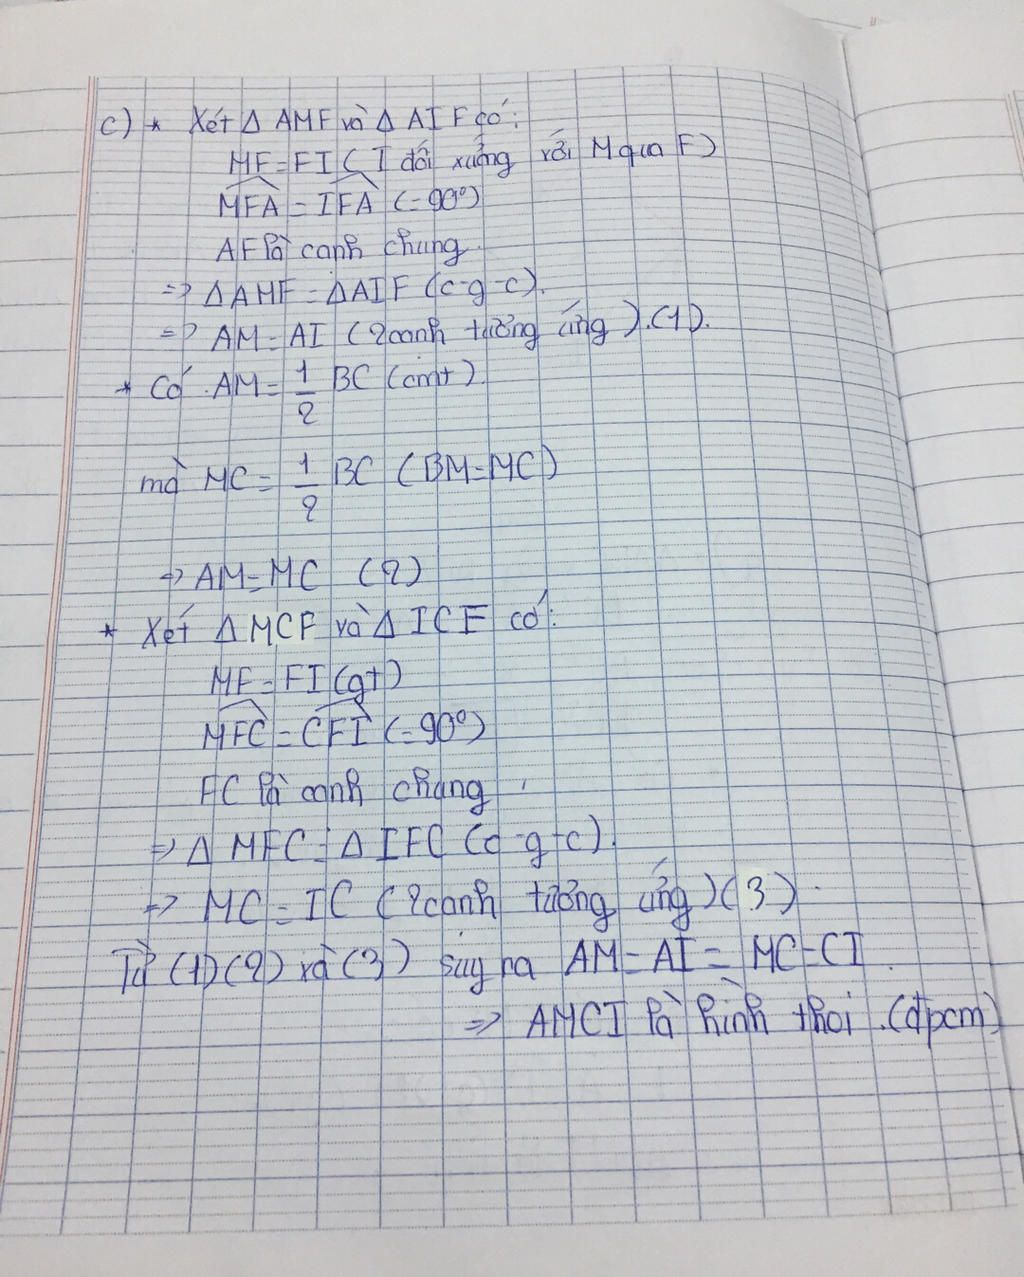 c) * Xét Δ AMF và Δ AIF có:
MF = FI ( I đối xứng với M qua F)
MFA = IFA (= 90°)
AF là cạnh chung.
=> Δ AMF = Δ AIF (c-g-c).
=> AM = AI (2 cạnh tương ứng ).(1).
* Có . AM = 1/2 BC (cmt).
mà MC = 1/2 BC (BM=MC)
=> AM = MC (2)
* Xét Δ MCF và Δ ICF có:
MF = FI (gt)
MFC = CFI (= 90°)
FC là cạnh chung
=> Δ MFC = Δ IFC (c-g-c).
=> MC = IC (2 cạnh tương ứng )(3).
Từ (1) (2) và (3) suy ra AM = AI = MC = CI.
=> AMCI là hình thoi .(đpcm)